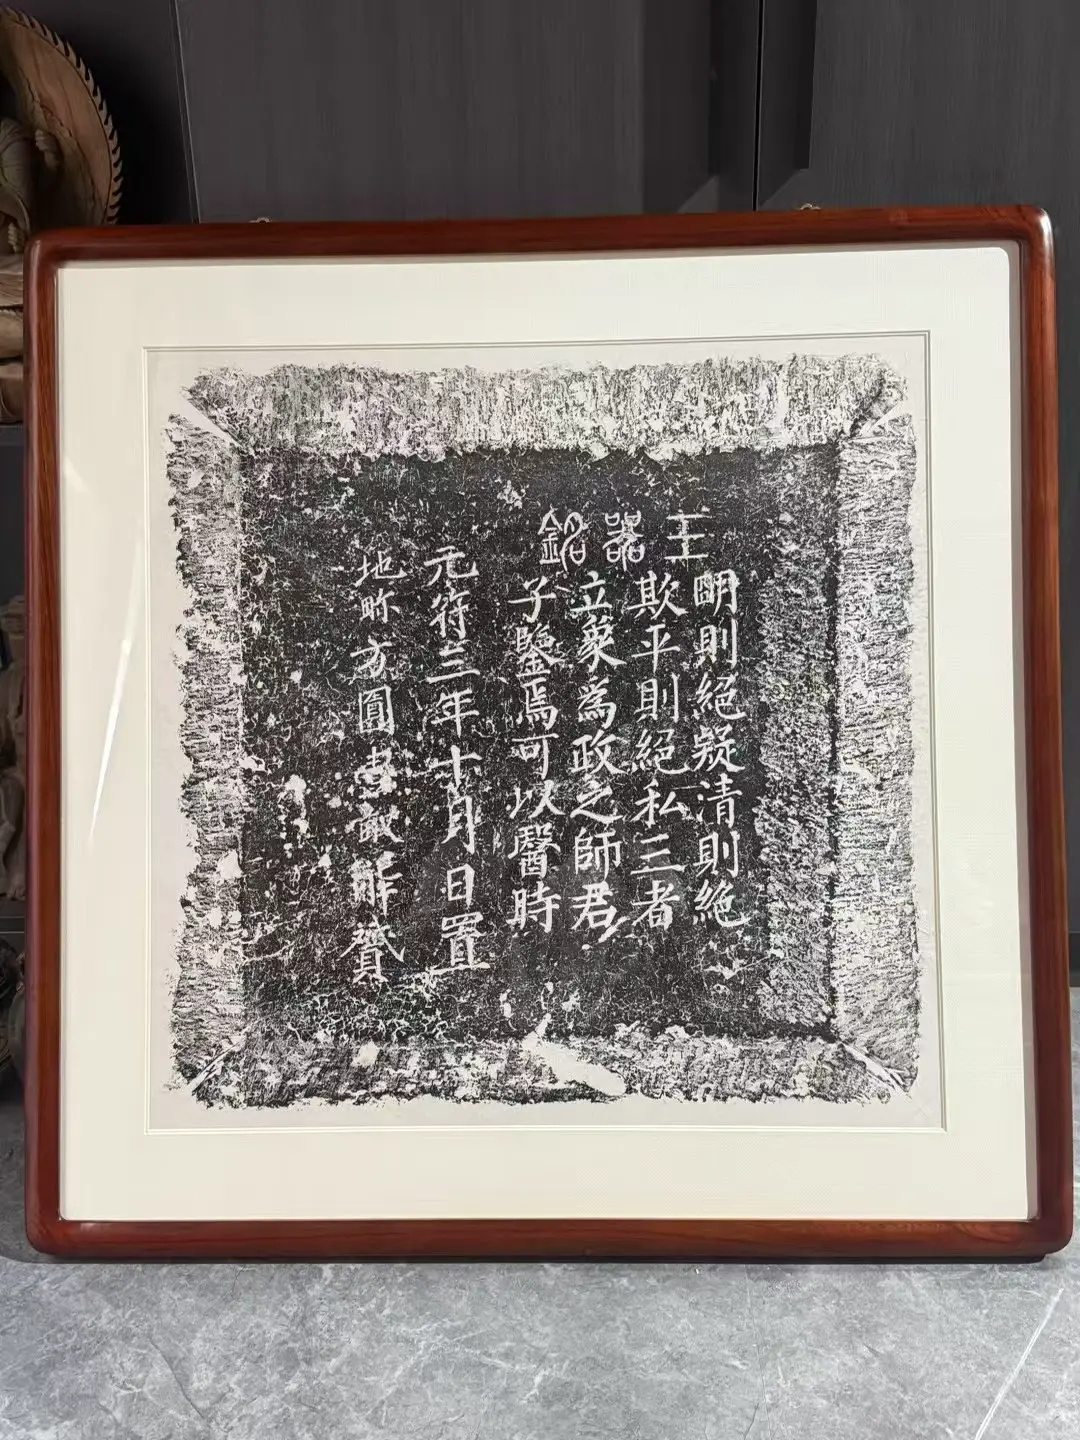 器銘
朙則絕疑清則絕
欺平則絕私三者
立象為政之師君
子鑒焉可以醫時
元符三年十月日置
地眎方圓書